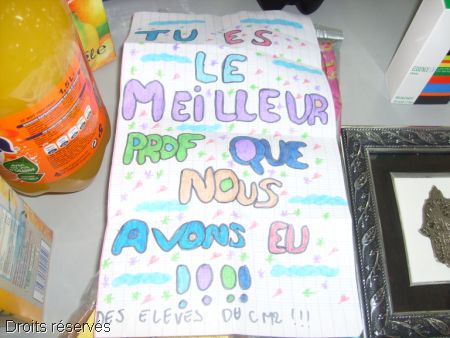 TU ES
LE
MEILLEUR
PROF QUE
NOUS
AVONS EU
!!!!
DES ELEVES DU CM2 !!!
Droits réservés